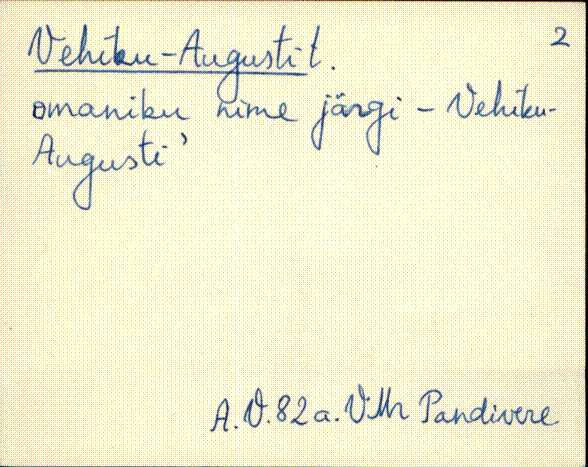 2
Vehiku-Augusti t.
omaniku nime järgi - Vehiku-
Augusti'
A. V. 82 a. VMr Pandivere